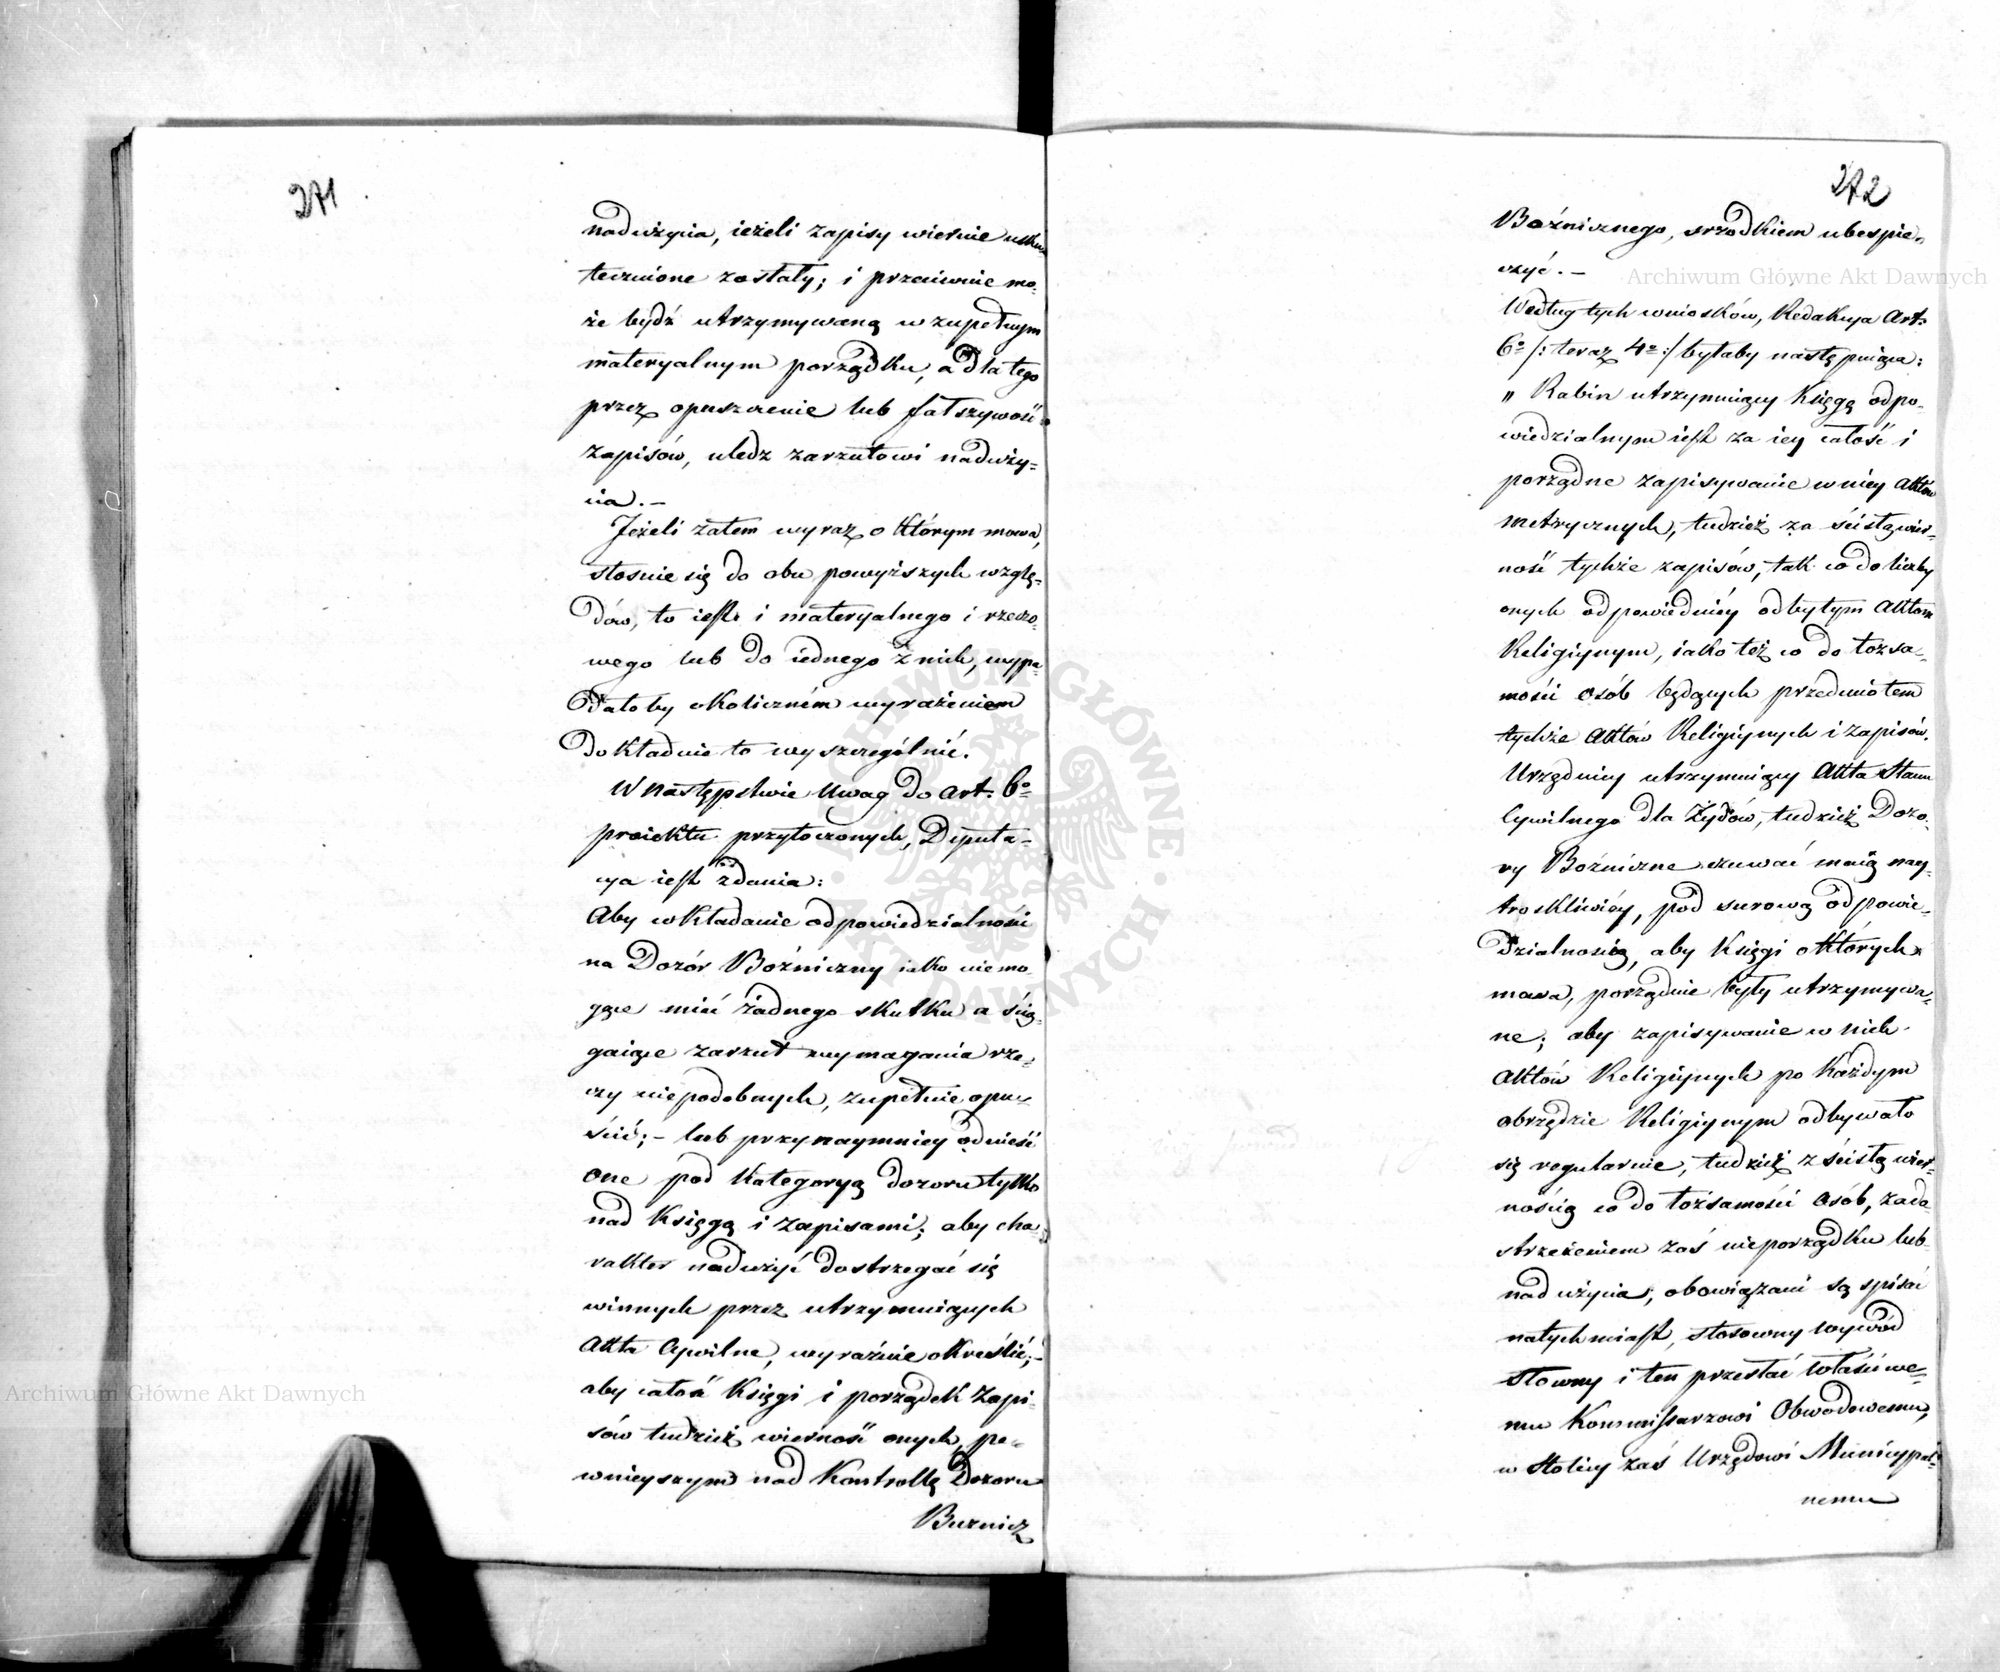 271
nadużycia, ieżeli zapisy wiernie usku
tecznione zostały; i przeciwnie mo-
że bydź utrzymywaną w zupełnym
materyalnym porządku, a dla tego
przez opuszczenie lub fałszywość
zapisów, uledz zarzutowi naduży-
cia.—
Jeżeli zatem wyraz o którym mowa,
stosuie się do obu powyższych wzglę-
dów, to iest i materyalnego i rzeczo-
wego lub do iednego z nich, wypa
dałoby okoliczném wyrażeniem
dokładnie to wyszczególnić.
W następstwie Uwag do Art. 6º
proiektu przytoczonych, Deputa-
cya iest zdania:
Aby wkładanie odpowiedzialności
na Dozór Bożniczny iako niemo
gące mieć żadnego skutku a ścią-
gaiące zarzut wymagania rze-
czy niepodobnych, zupełnie opu-
ścić; — lub przynaymniey odnieść
one pod kategoryą dozoru tylko
nad Księgą i zapisami; aby cha-
rakter nadużyć dostrzegać się
winnych przez utrzymuiących
Akta Cywilne, wyraźnie określić; —
aby całość Księgi i porządek Zapi-
sów tudzież wierność onych, pe-
wnieyszym nad Kontrollę Dozoru
Buznicz
272
Bożnicznego, srzodkiem ubespie-
czyć. —
Według tych wniosków, Redakcya Art:
6º /: teraz 4º :/ byłaby następuiąca:
„ Rabin utrzymuiący Księgę odpo-
wiedzialnym iest za iey całość i
porządne zapisywanie w niey Aktów
metrycznych, tudzież za ścisłą wier-
ność tychże zapisów, tak co do liczby
onych odpowiedniey odbytym Aktom
Religiynym, iako też co do tożsa-
mości osób będących przedmiotem
tychże Aktów Religiynych i zapisów.
Urzędnicy utrzymuiący Akta Stanu
Cywilnego dla Żydów, tudzież Dozo-
ry Bożniczne czuwać maią nay-
troskliwiey, pod surową odpowie-
dzialnością, aby Księgi o których
mowa, porządnie były utrzymywa-
ne; aby zapisywanie w nich
Aktów Religiynych po każdym
obrzędzie Religiynym odbywało
się regularnie, tudzież z ścisłą wier-
nością co do tożsamości osób, za do-
strzeżeniem zaś nieporządku lub
nadużycia, obowiązani są spisać
natychmiast, stosowny wywód
słowny i ten przesłać właściwe-
mu Kommissarzowi Obwodowemu,
w Stolicy zaś Urzędowi Municypal-
nemu
Archiwum Główne Akt Dawnych
Archiwum Główne Akt Dawnych
ARCHIWUM GŁÓWNE
AKT DAWNYCH